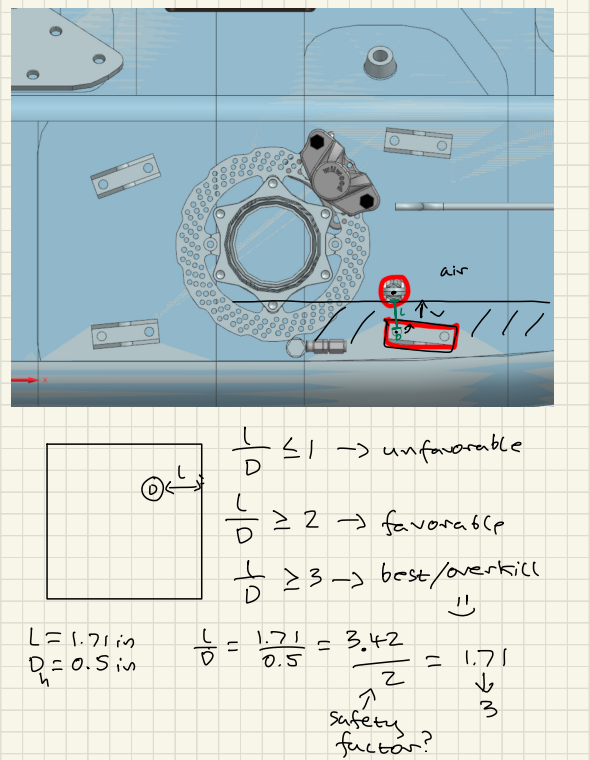 air
L
D
X
L
D
L/D ≤ 1 → unfavorable
L/D ≥ 2 → favorable
L/D ≥ 3 → best/overkill
L = 1.71 in
D_h = 0.5 in
L/D = 1.71/0.5 = 3.42/2 = 1.71
↓
3
safety
factor?